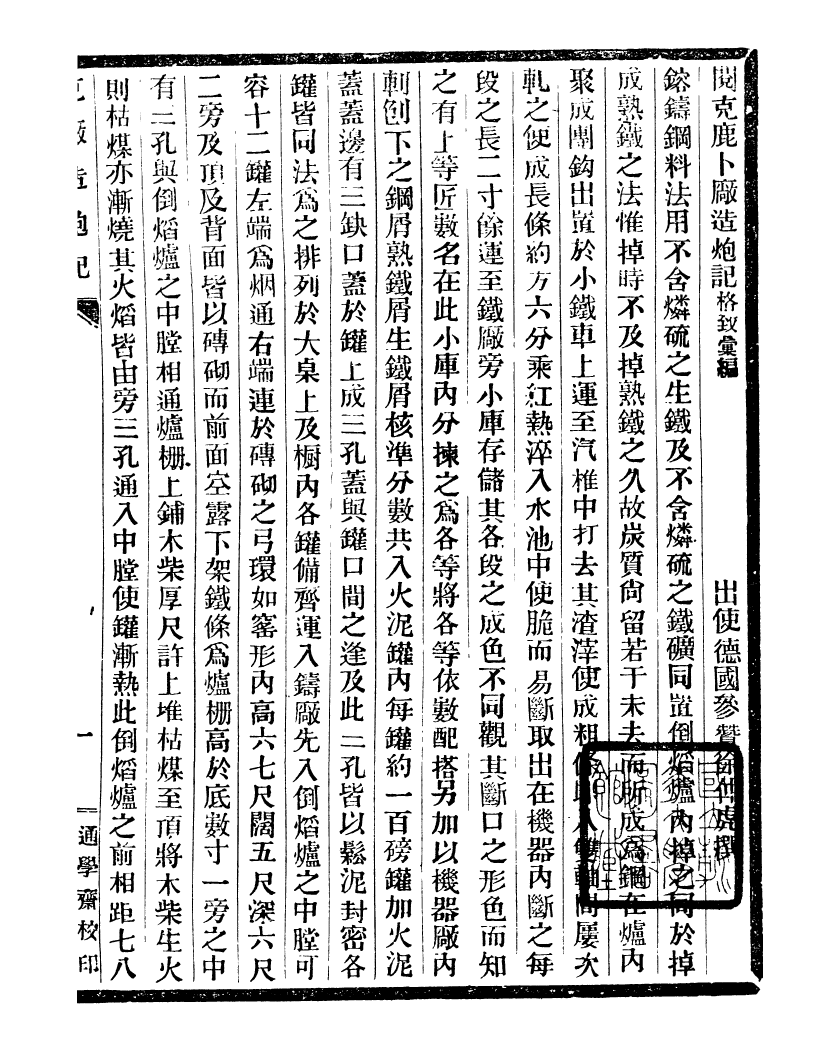 閱克鹿卜廠造炮記格致彙編　出使德國參贊徐仲虎撰
鎔鑄鋼料法用不含燐硫之生鐵及不含燐硫之鐵礦同置倒熖爐內掉之同於掉
成熟鐵之法惟掉時不及掉熟鐵之久故炭質尙留若干未去而所成爲鋼在爐內
聚成團鈎出置於小鐵車上運至汽椎中打去其渣滓使成粗條此入雙軸間屢次
軋之使成長條約方六分乘紅熱淬入水池中使脆而易斷取出在機器內斷之每
段之長二寸餘運至鐵廠旁小庫存儲其各段之成色不同觀其斷口之形色而知
之有上等匠數名在此小庫內分揀之爲各等將各等依數配搭另加以機器廠內
剌刨下之鋼屑熟鐵屑生鐵屑核準分數共入火泥罐內每罐約一百磅罐加火泥
蓋蓋邊有三缺口蓋於罐上成三孔蓋與罐口間之逢及此二孔皆以鬆泥封密各
罐皆同法爲之排列於大桌上及櫥內各罐備齊運入鑄廠先入倒熖爐之中膛可
容十二罐左端爲烟通右端連於磚砌之弓環如窰形內高六七尺闊五尺深六尺
二旁及頂及背面皆以磚砌而前面空露下架鐵條爲爐栅高於底數寸一旁之中
有三孔與倒熖爐之中膛相通爐栅上鋪木柴厚尺許上堆枯煤至頂將木柴生火
則枯煤亦漸燒其火熖皆由旁三孔通入中膛使罐漸熱此倒熖爐之前相距七八
克廠造炮記　一　通學齋校印